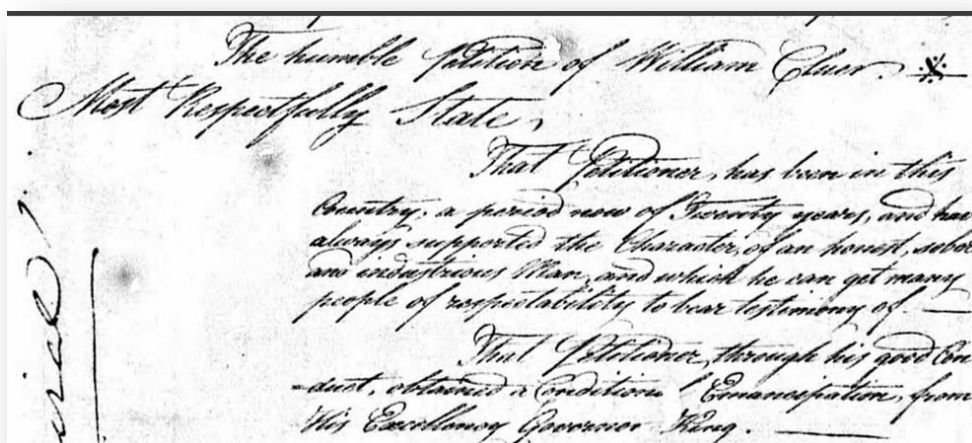 The humble Petition of William Cluer.
Most Respectfully State,
That Petitioner, has been in this
Country, a period now of Twenty years, and has
always supported the Character, of an honest, sober
and industrious Man, and which he can get many
people of respectability to bear testimony of —
That Petitioner, through his good Con
-duct, obtained a Conditional Emancipation, from
His Excellency Governor King. —